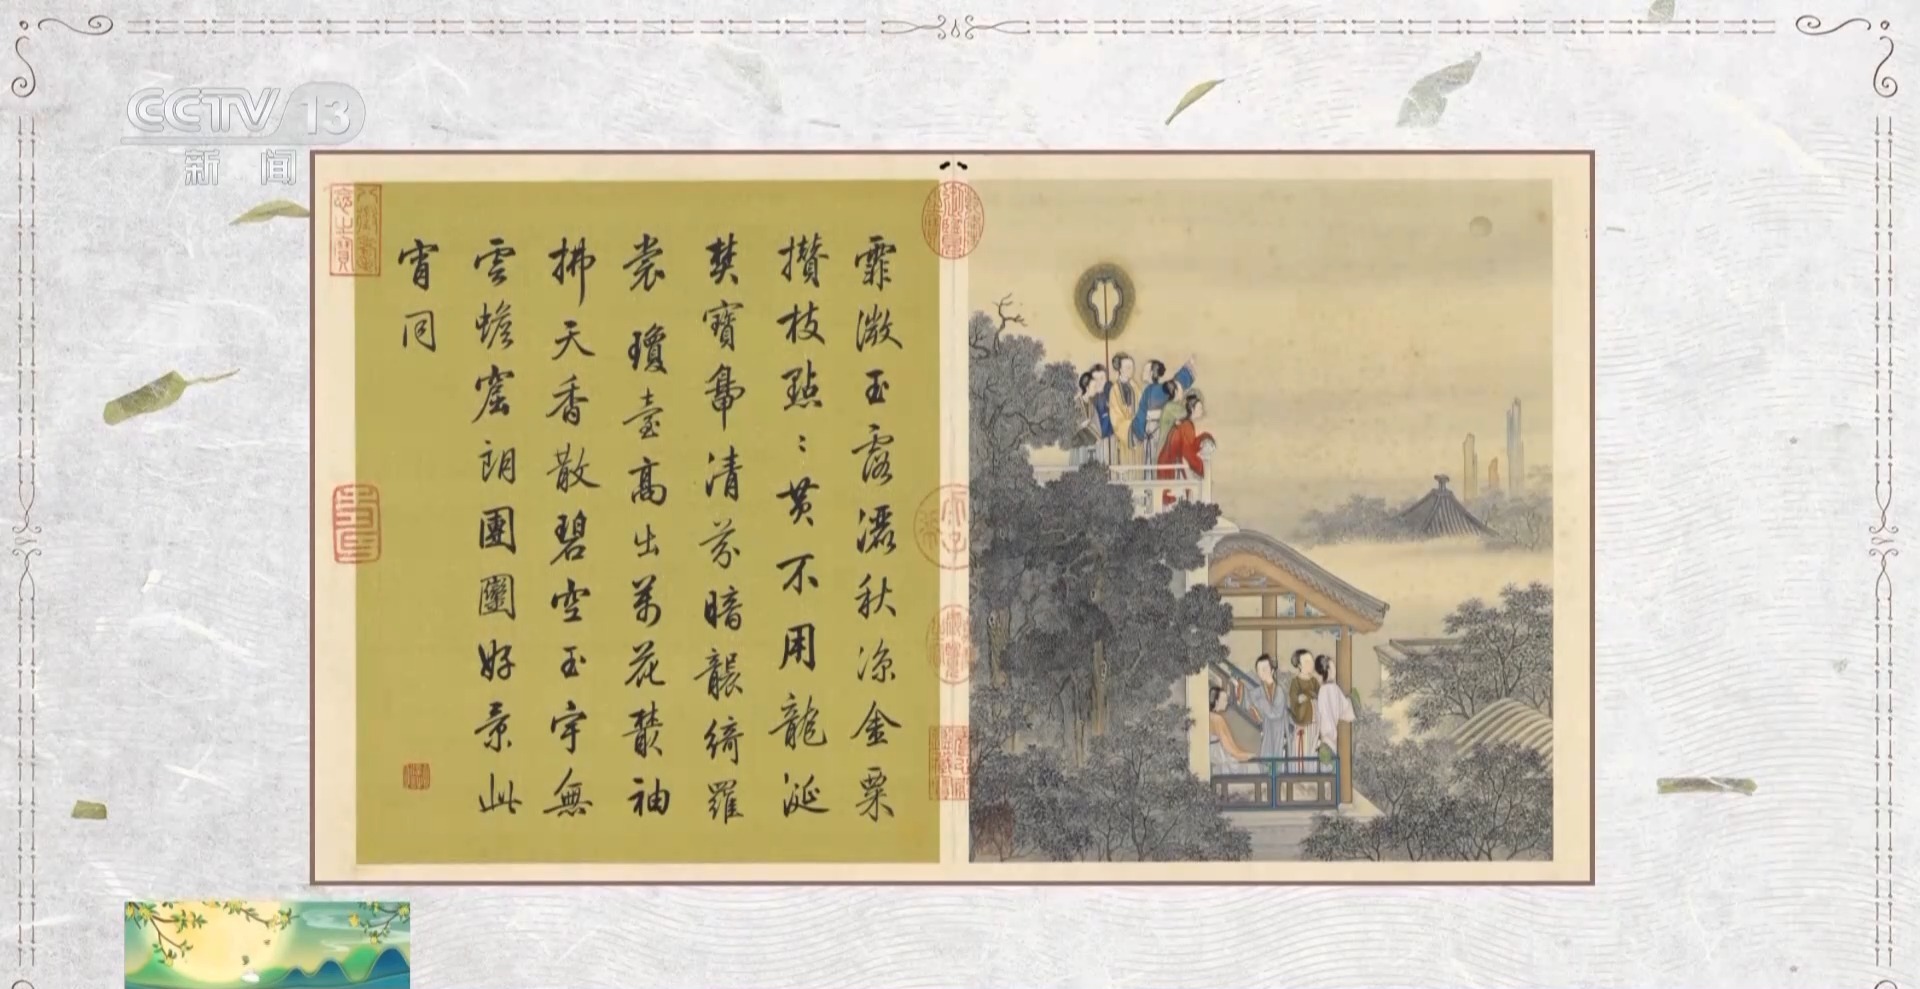 CCTV 13
新闻
霏微玉露灑秋涼金粟
攢枝點〻黃不用龍涎
焚寶鼎清芬暗襲綺羅
裳 瓊臺高出萬花叢袖
拂天香散碧空玉宇無
雲蟾窟朗團圞好景此
宵同